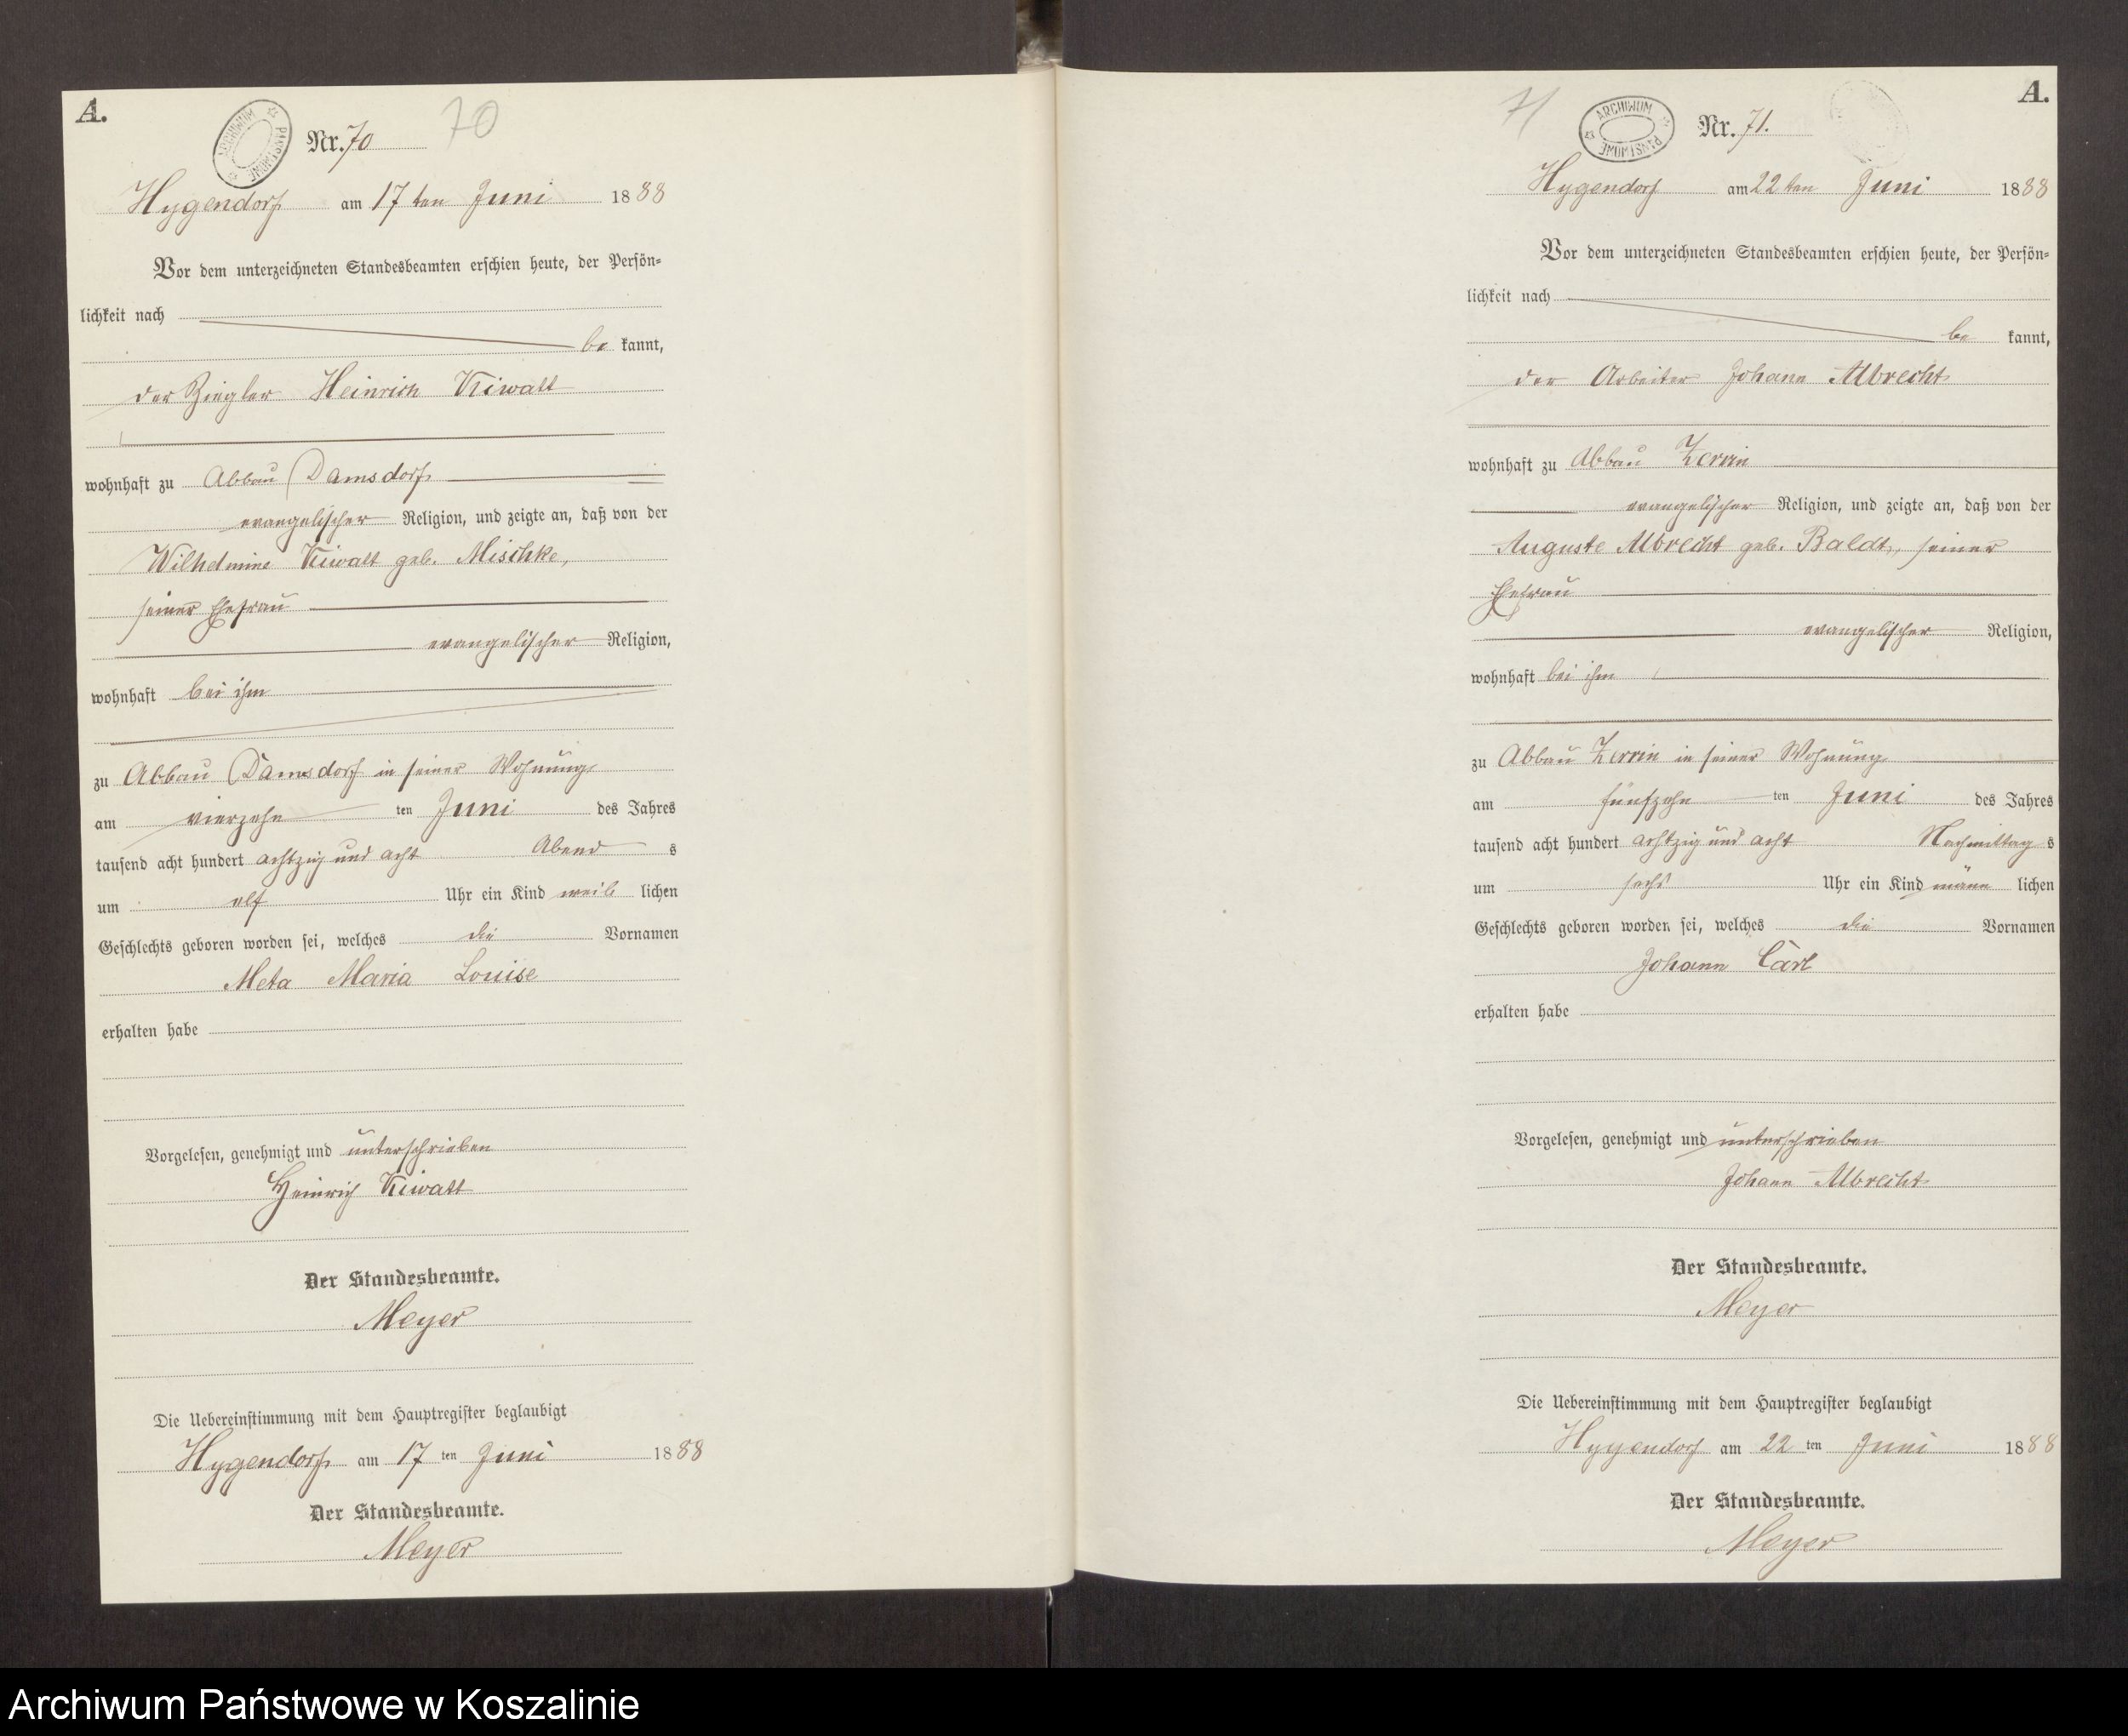 A.
ARCHIWUM PAŃSTWOWE
Nr. 70
70
Hygendorf am 17 ten Juni 1888
Vor dem unterzeichneten Standesbeamten erschien heute, der Persön-
lichkeit nach
be kannt,
der Ziegler Heinrich Kiwatt
wohnhaft zu Abbau Damsdorf
evangelischer Religion, und zeigte an, daß von der
Wilhelmine Kiwatt geb. Mischke,
seiner Ehefrau
evangelischer Religion,
wohnhaft bei ihm
zu Abbau Damsdorf in seiner Wohnung
am vierzehn ten Juni des Jahres
tausend acht hundert achtzig und acht Abend s
um elf Uhr ein Kind weib lichen
Geschlechts geboren worden sei, welches die Vornamen
Meta Maria Louise
erhalten habe
Vorgelesen, genehmigt und unterschrieben
Heinrich Kiwatt
Der Standesbeamte.
Meyer
Die Uebereinstimmung mit dem Hauptregister beglaubigt
Hygendorf am 17 ten Juni 1888
Der Standesbeamte.
Meyer
A.
71
ARCHIWUM PAŃSTWOWE
Nr. 71.
Hygendorf am 22 ten Juni 1888
Vor dem unterzeichneten Standesbeamten erschien heute, der Persön-
lichkeit nach
be kannt,
der Arbeiter Johann Albrecht
wohnhaft zu Abbau Zerrin
evangelischer Religion, und zeigte an, daß von der
Auguste Albrecht geb. Baldt, seiner
Ehefrau
evangelischer Religion,
wohnhaft bei ihm
zu Abbau Zerrin in seiner Wohnung
am fünfzehn ten Juni des Jahres
tausend acht hundert achtzig und acht Nachmittag s
um sechs Uhr ein Kind männ lichen
Geschlechts geboren worden sei, welches die Vornamen
Johann Carl
erhalten habe
Vorgelesen, genehmigt und unterschrieben
Johann Albrecht
Der Standesbeamte.
Meyer
Die Uebereinstimmung mit dem Hauptregister beglaubigt
Hygendorf am 22 ten Juni 1888
Der Standesbeamte.
Meyer
Archiwum Państwowe w Koszalinie